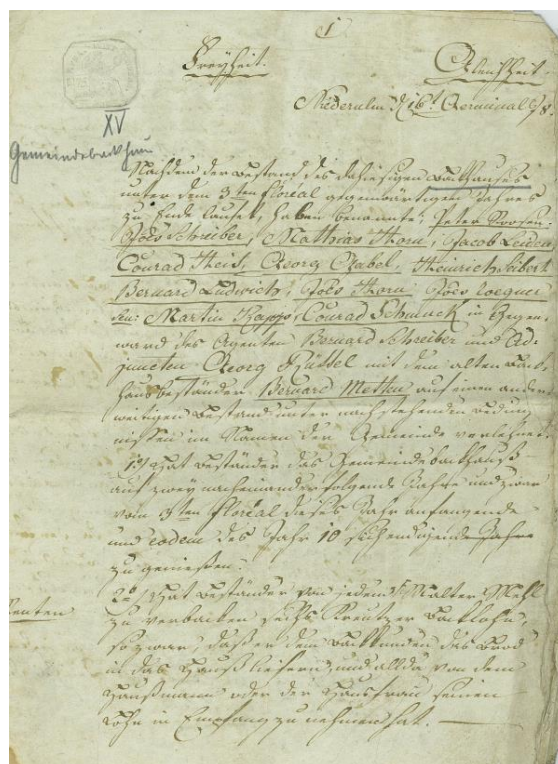 1
Freyheit.
Gleichheit
Niederulm d. 16t Germinal 8.
XV
Gemeindebackhaus
Nachdem der Bestand des dahiesigen Backhauses
unter dem 3ten floréal gegenwärtigen Jahres
zu Ende laufet, haben benannte, Peter
Joës Schreiber, Mathias Horn, Jacob
Conrad Theis, Georg Gabel, Heinrich Seibert
Bernard Ludwich, Joës Horn, Joës
Martin Kapp, Conrad Schmuck in Gegen-
ward des Agenten Bernard Schreiber und Ad-
juncten Georg mit dem alten Back-
hausbeständer Bernard Metten auf einen ander-
weitigen Bestand unter nachstehenden Beding-
nissen im Namen der Gemeinde verlehnet
1o/ Hat Beständer das Gemeindebackhaus
auf zwey nacheinander folgende Jahre und zwar
vom 3ten floréal dieses Jahr anfangende
und eodem des Jahr 10 sich endigende Jahre
zu geniesen.
2o/ Hat Beständer von jedem Malter Mehl
zu verbacken sechs Kreutzer Backlohn,
so zwar, daß er dem Backkunden das Brod
in das Hauß liefern, und allda von dem
Haußmann oder der Hausfrau seinen
Lohn in Empfang zu nehmen hat.